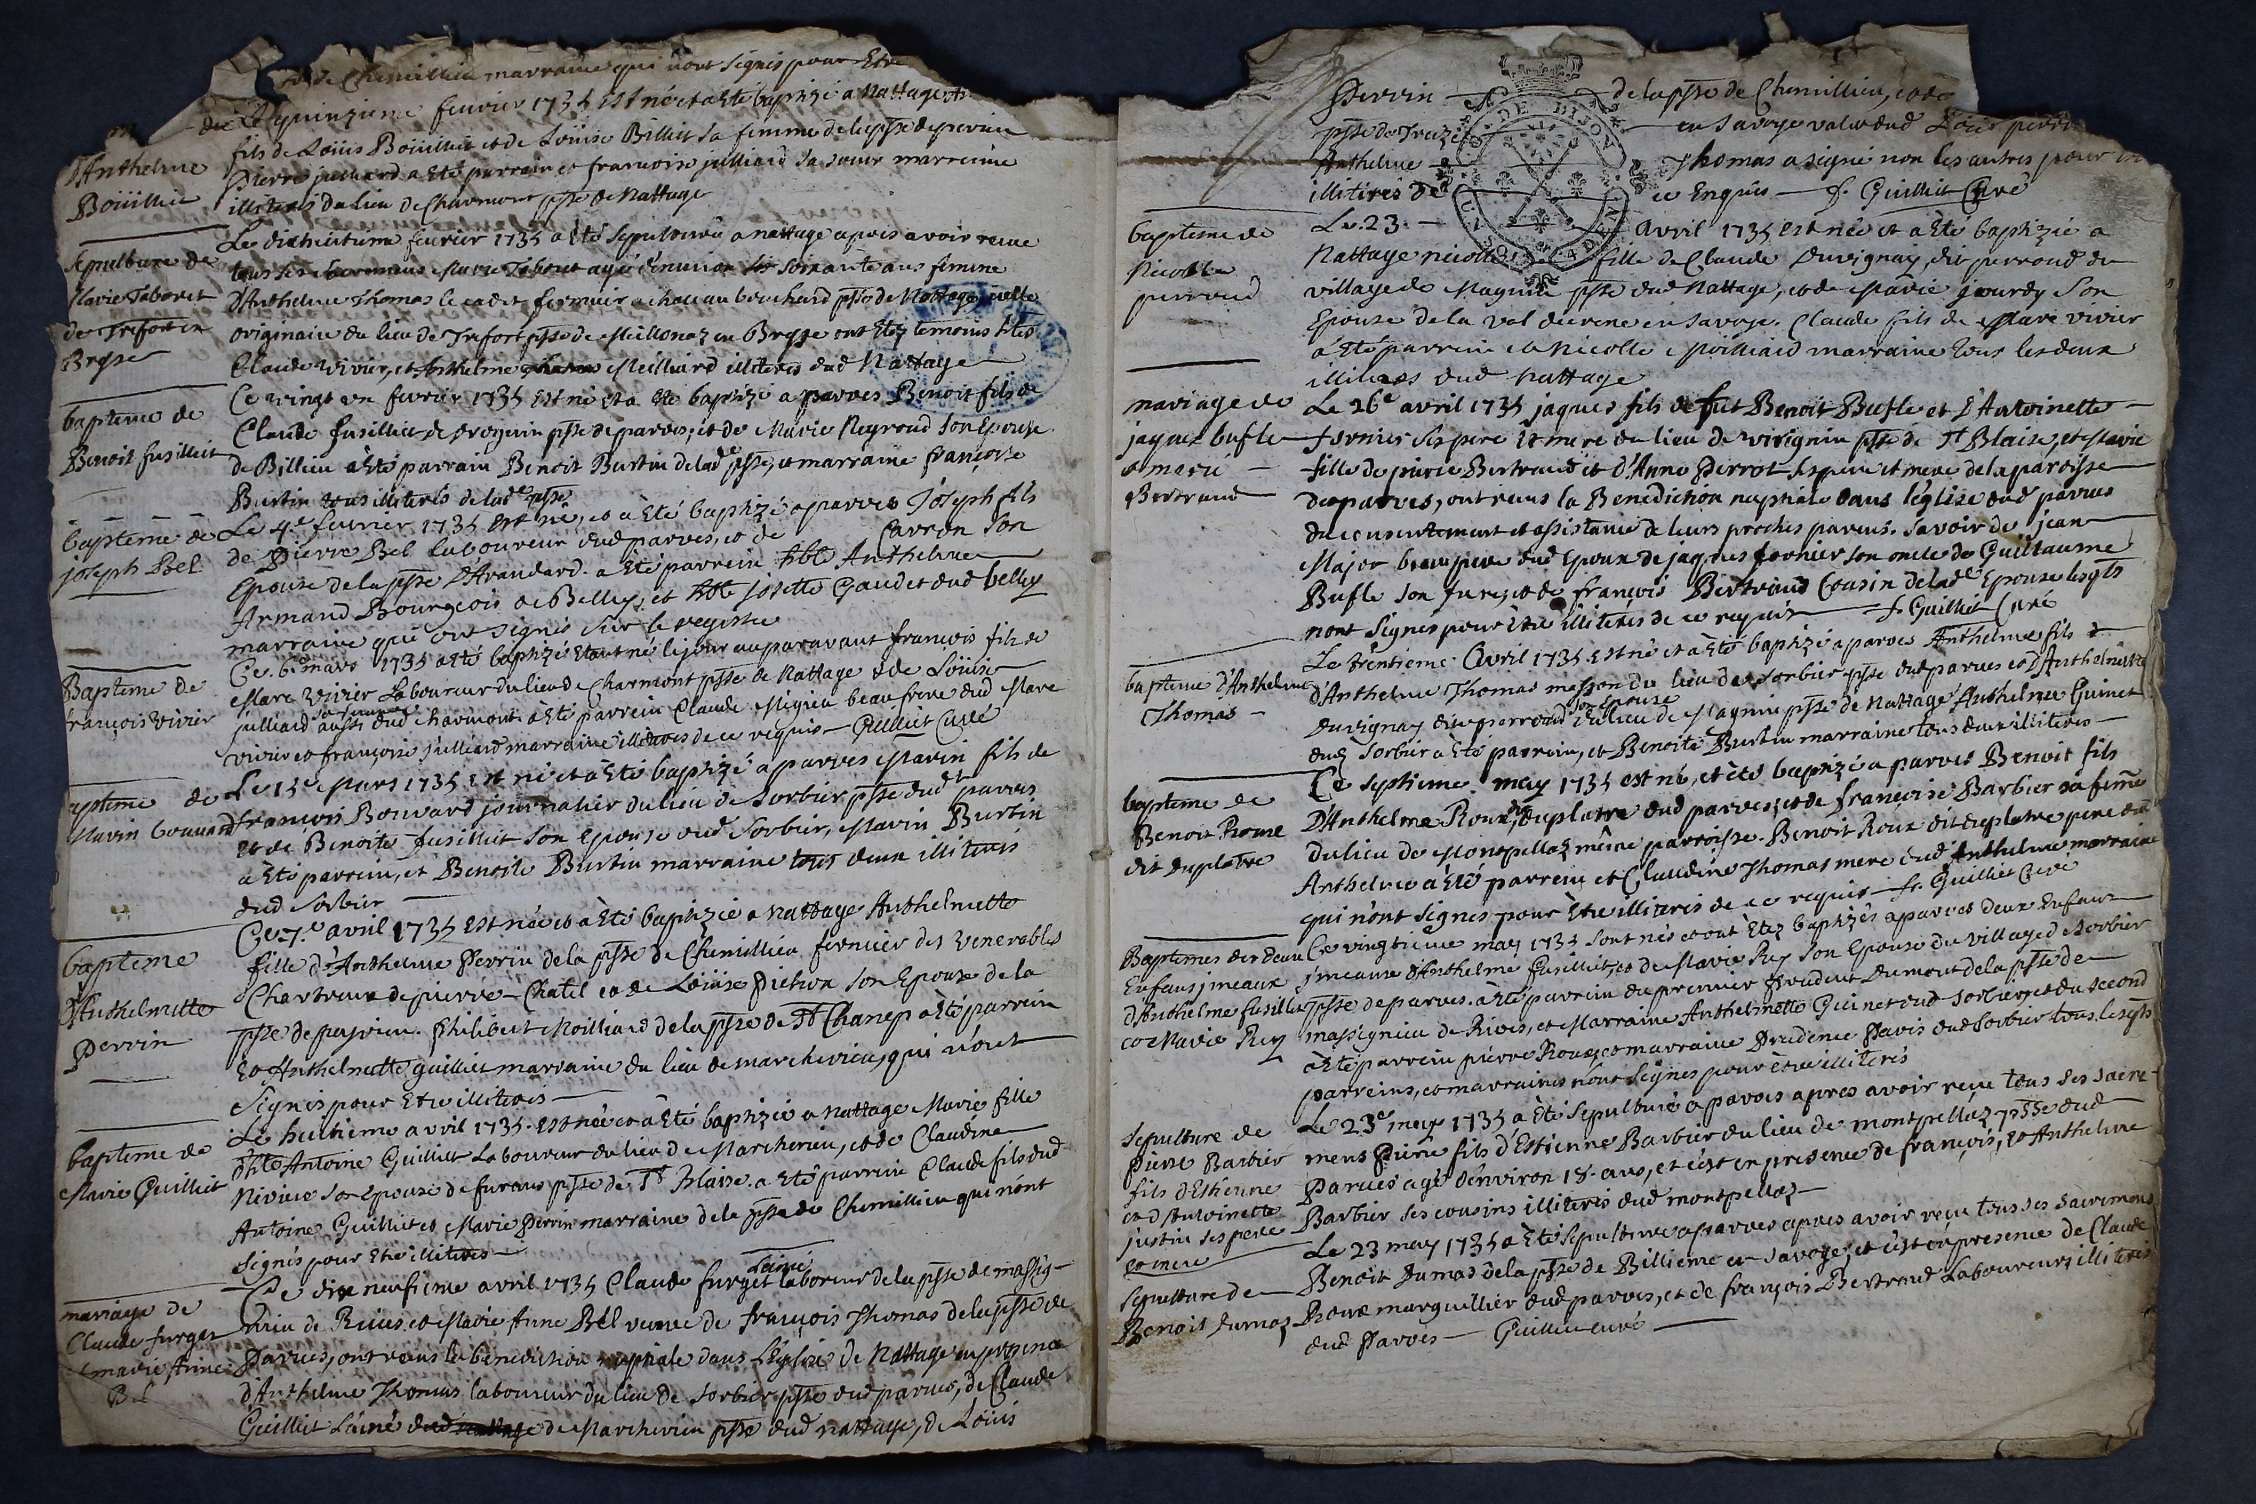 de Chemillieu marraine qui n'ont signés pour Etre
Le quinzieme feuvrier 1735 est né et a été baptizé a Nattage
d'Anthelme
Boüillet
fils de Loüis Boüilliet et de Loüise Billiet sa femme de la psse de peyrieu
Pierre julliard a Eté parrein et francoise julliard sa soeur marreine
illiterés du lieu de Charmont psse de Nattage
Sepulture de
Marie Taboret
de Trefort en
Bresse
Le dixhuitieme feuvrier 1735 a Eté sepulturée a nattage apres avoir receu
tous ses sacremens Marie Taboret agée d'environ soixante ans femme
d'Anthelme Thomas le cadet fermier a chateau bouchard psse de Nattage, icelle
originaire du lieu de Trefort psse de Meillonaz en Bresse ont Etez temoins
Claude Vivier, et Anthelme Meilliard illiteres dud Nattage
bapteme de
Benoit fusilliet
Ce vingt un feuvrier 1735 Est né et a Eté baptizé a parves Benoit fils de
Claude fusilliet de psse de parves, et de Marie Reyroud son Epouse
de Billieu a Eté parrain Benoit Burtin de lad psse, et marraine françoise
Burtin tous illiterés de lad psse
bapteme de
joseph Bel
Le 4e feuvrier 1735 est né, et a Eté baptizé a parves Joseph fils
de Pierre Bel laboureur dud parves, et de Carron son
Epouse de la psse d'Arandard. a Eté parrein hble Anthelme
Armand Bourgeois de Belley, et hble Josette Gaudet dud belley
marraine qui ont signés sur le registre
Bapteme de
françois Vivier
Ce 6e mars 1735 a Eté baptizé Etant né le jour auparavant françois fils de
Marc Vivier Laboureur du lieu de Charmont psse de Nattage & de Loüise
julliard sa femme aussi dud charmont a Eté parrein Claude Mignieu beau frere dud Marc
vivier et françoise julliard marraine illiteres de ce requis — Guilliet Curé
bapteme de
Marin bouvard
Le 15e Mars 1735 Est né et a Eté baptizé a parves Marin fils de
françois Bouvard journalier du lieu de Sorbier psse dud parves
et de Benoite fusilliet son epouse dud Sorbier, Marin Burtin
a Eté parrein, et Benoite Burtin marraine tous deux illiterés
dud Sorbier
bapteme
d'Anthelmette
Perrin
Ce 7.e avril 1735 Est née et a Eté baptizée a nattage Anthelmette
fille d'Anthelme Perrin de la psse de Chemillieu fermier des venerables
Chartreux de pierre-Chatel et de Loüise Piction son Epouse de la
psse de peyrieu. Philibert Moilliard de la psse de St Chanep a eté parrein
Et Anthelmette guilliet marraine du lieu de marcherieu, qui n'ont
Signés pour Etre illiterés
bapteme de
Marie Guilliet
Le huitieme avril 1735. Est née et a Eté baptizée a Nattage Marie fille
d'hte Antoine Guilliet Laboureur du lieu de Marcherieu, et de Claudine
Niviere son Epouse de furans psse de St Blaise. a Eté parrein Claude fils dud
Antoine Guilliet et Marie Perrin marraine de la psse de Chemillieu qui n'ont
signés pour Etre illiteres
mariage de
Claude furget
& marie Anne
Bel
Ce dix neufieme avril 1735 Claude furget Lainé laboreur de la psse de massig-
nieu de Rives et Marie Anne Bel veuve de françois Thomas de la psse de
Parves, ont receus la benediction nuptiale dans l'Eglise de Nattage en presence
d'Anthelme Thomas laboureur du lieu de Sorbier psse dud parves, de Claude
Guilliet Lainé de Marcherieu psse dud nattage, de Loüis
Perrin de la psse de Chemillieu, et de
psse de Treize en Savoye valet dud Loüis perrin
Anthelme Thomas a signé non les autres pour
illitires de ce Enquis — f. Guilliet Curé
DE DIJON
bapteme de
Nicolle
perroud
Le 23. Avril 1735 Est née et a Eté baptizée a
Nattage nicolle fille de Claude Duvignay, dit perroud du
village de Magnin psse dud Nattage, et de Marie jourdy son
Epouse de la val dieme en Savoye. Claude fils de Marc vivier
a Eté parrein et Nicolle Moilliard marraine tous les deux
illiteres dud nattage
mariage de
jaques bufle
& marie
Bertrand
Le 26e avril 1735 jaques fils de fut Benoit Bufle et d'Antoinette
fornier ses pere et mere du lieu de virignin psse de St Blaise, et Marie
fille de pierre Bertrand et d'Anne Perrot ses pere et mere de la paroisse
de parves, ont receus la Benediction nuptiale dans l'église dud parves
du consentement et assistance de leurs proches parens. Savoir de jean
Major beaupere dud Epoux de jaques fornier son oncle de Guillaume
Bufle son frere, et de françois Bertrand Cousin de lad Epouse lesqls
n'ont signes pour être illiterés de ce requis — f. Guilliet Curé
bapteme d'Anthelme
Thomas
Le trentieme Avril 1735 est né et a Eté baptizé a parves Anthelme fils
d'Anthelme Thomas masson du lieu de Sorbier psse dud parves et d'Anthelmette
duvignay dite perroud son epouse du lieu de Magnin psse de Nattage Anthelme Guinet
dud Sorbier a Eté parrein, et Benoite Burtin marraine tous deux illiteres
bapteme de
Benoit Roux
dit duplatre
Ce septieme may 1735 est né, et été baptizé a parves Benoit fils
D'Anthelme Roux dit duplatre dud parves, et de françoise Barbier sa feme
du lieu de Montpellaz même parroisse. Benoit Roux dit duplatre pere dud
Anthelme a Eté parrein et Claudine Thomas mere dud Anthelme marraine
qui n'ont signes pour Etre illiteres de ce requis — f. Guilliet Curé
Baptemes des deux
Enfans jmeaux
d'Anthelme fusilliet
et Marie Rey
Ce vingtieme may 1735 sont nés et ont Etez baptizés a parves deux Enfans
jmeaux d'Anthelme fusilliet, et de Marie Rey son Epouse du village de Sorbier
psse de parves. a Eté parrein du premier Prudent Dumont de la psse de
massignieu de Rives, et Marraine Anthelmette Guinet dud Sorbier, et du second
a Eté parrein pierre Roux, et marraine Prudence Pavis dud Sorbier tous lesqls
parreins, et marraines n'ont signes pour être illiterés
Sepulture de
Pierre Barbier
fils d'Estienne
et d'Antoinette
justin ses pere
et mere
Le 23e may 1735 a Eté sepulturé a parves apres avoir reçu tous ses sacre-
mens Pierre fils d'Estienne Barbier du lieu de montpellaz psse dud
Parves agé d'environ 18 ans, et c'est en presence de françois, et Anthelme
Barbier ses cousins illiterés dud montpellaz
Sepulture de
Benoit Dumas
Le 23 may 1735 a Eté sepulturé a parves apres avoir reçu tous ses sacremens
Benoit Dumas de la psse de Billieme en Savoye, et c'est en presence de Claude
Roux marguillier dud parves, et de françois Bertrand Laboureurs illiteres
dud Parves — Guilliet curé